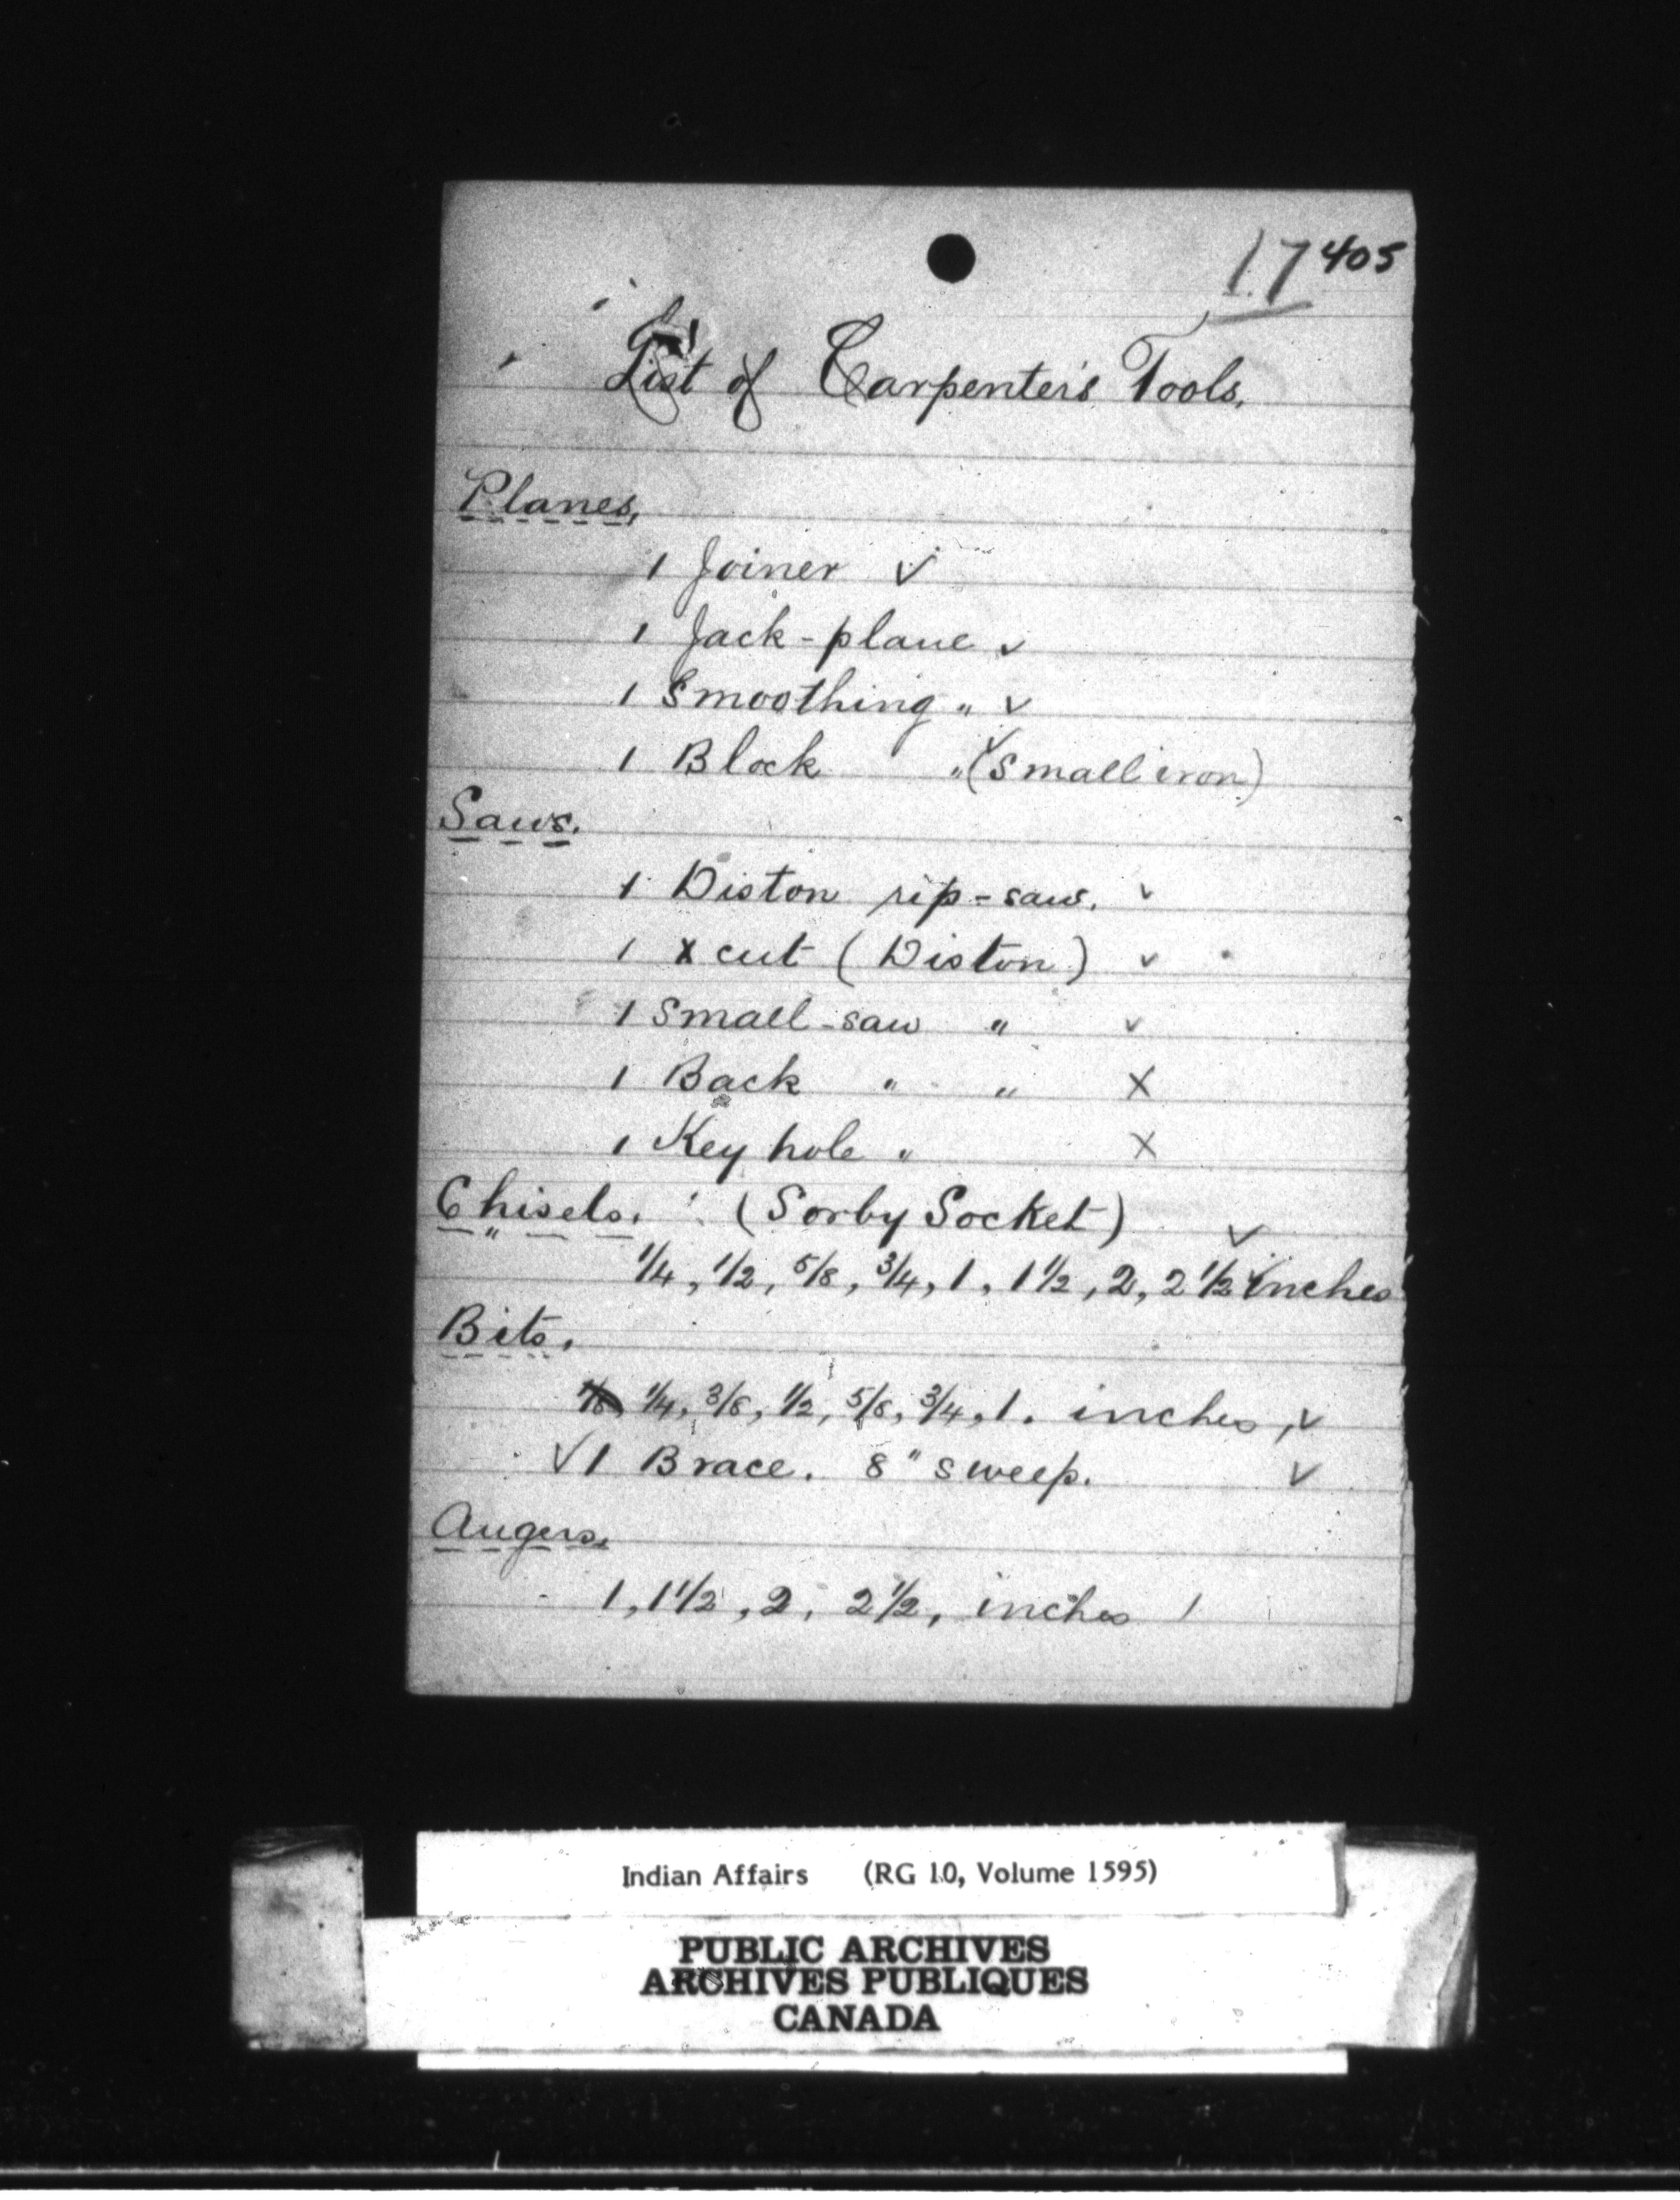 17 405
List of Carpenter's Tools.
Planes,
1 Joiner ✓
1 Jack-plane ✓
1 Smoothing " ✓
1 Block " ✓ (Small iron)
Saws.
1 Diston rip-saw. ✓
1 x cut (Diston) ✓
1 Small-saw " ✓
1 Back " " X
1 Key hole " X
Chisels. (Sorby Socket) ✓
1/4, 1/2, 5/8, 3/4, 1, 1 1/2, 2, 2 1/2 inches
Bits.
1/8, 1/4, 3/8, 1/2, 5/8, 3/4, 1. inches, ✓
✓ 1 Brace. 8" sweep. ✓
Augers.
1, 1 1/2, 2, 2 1/2, inches /
Indian Affairs (RG 10, Volume 1595)
PUBLIC ARCHIVES
ARCHIVES PUBLIQUES
CANADA